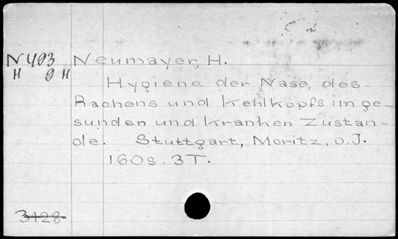 N493 Neumayer, H.
H 9H
Hygiene der Nase, des
Rachens und Kehlkopfs im ge-
sunden und kranken Zustan-
de. Stuttgart, Moritz, o.J.
160s. 3T.
3128